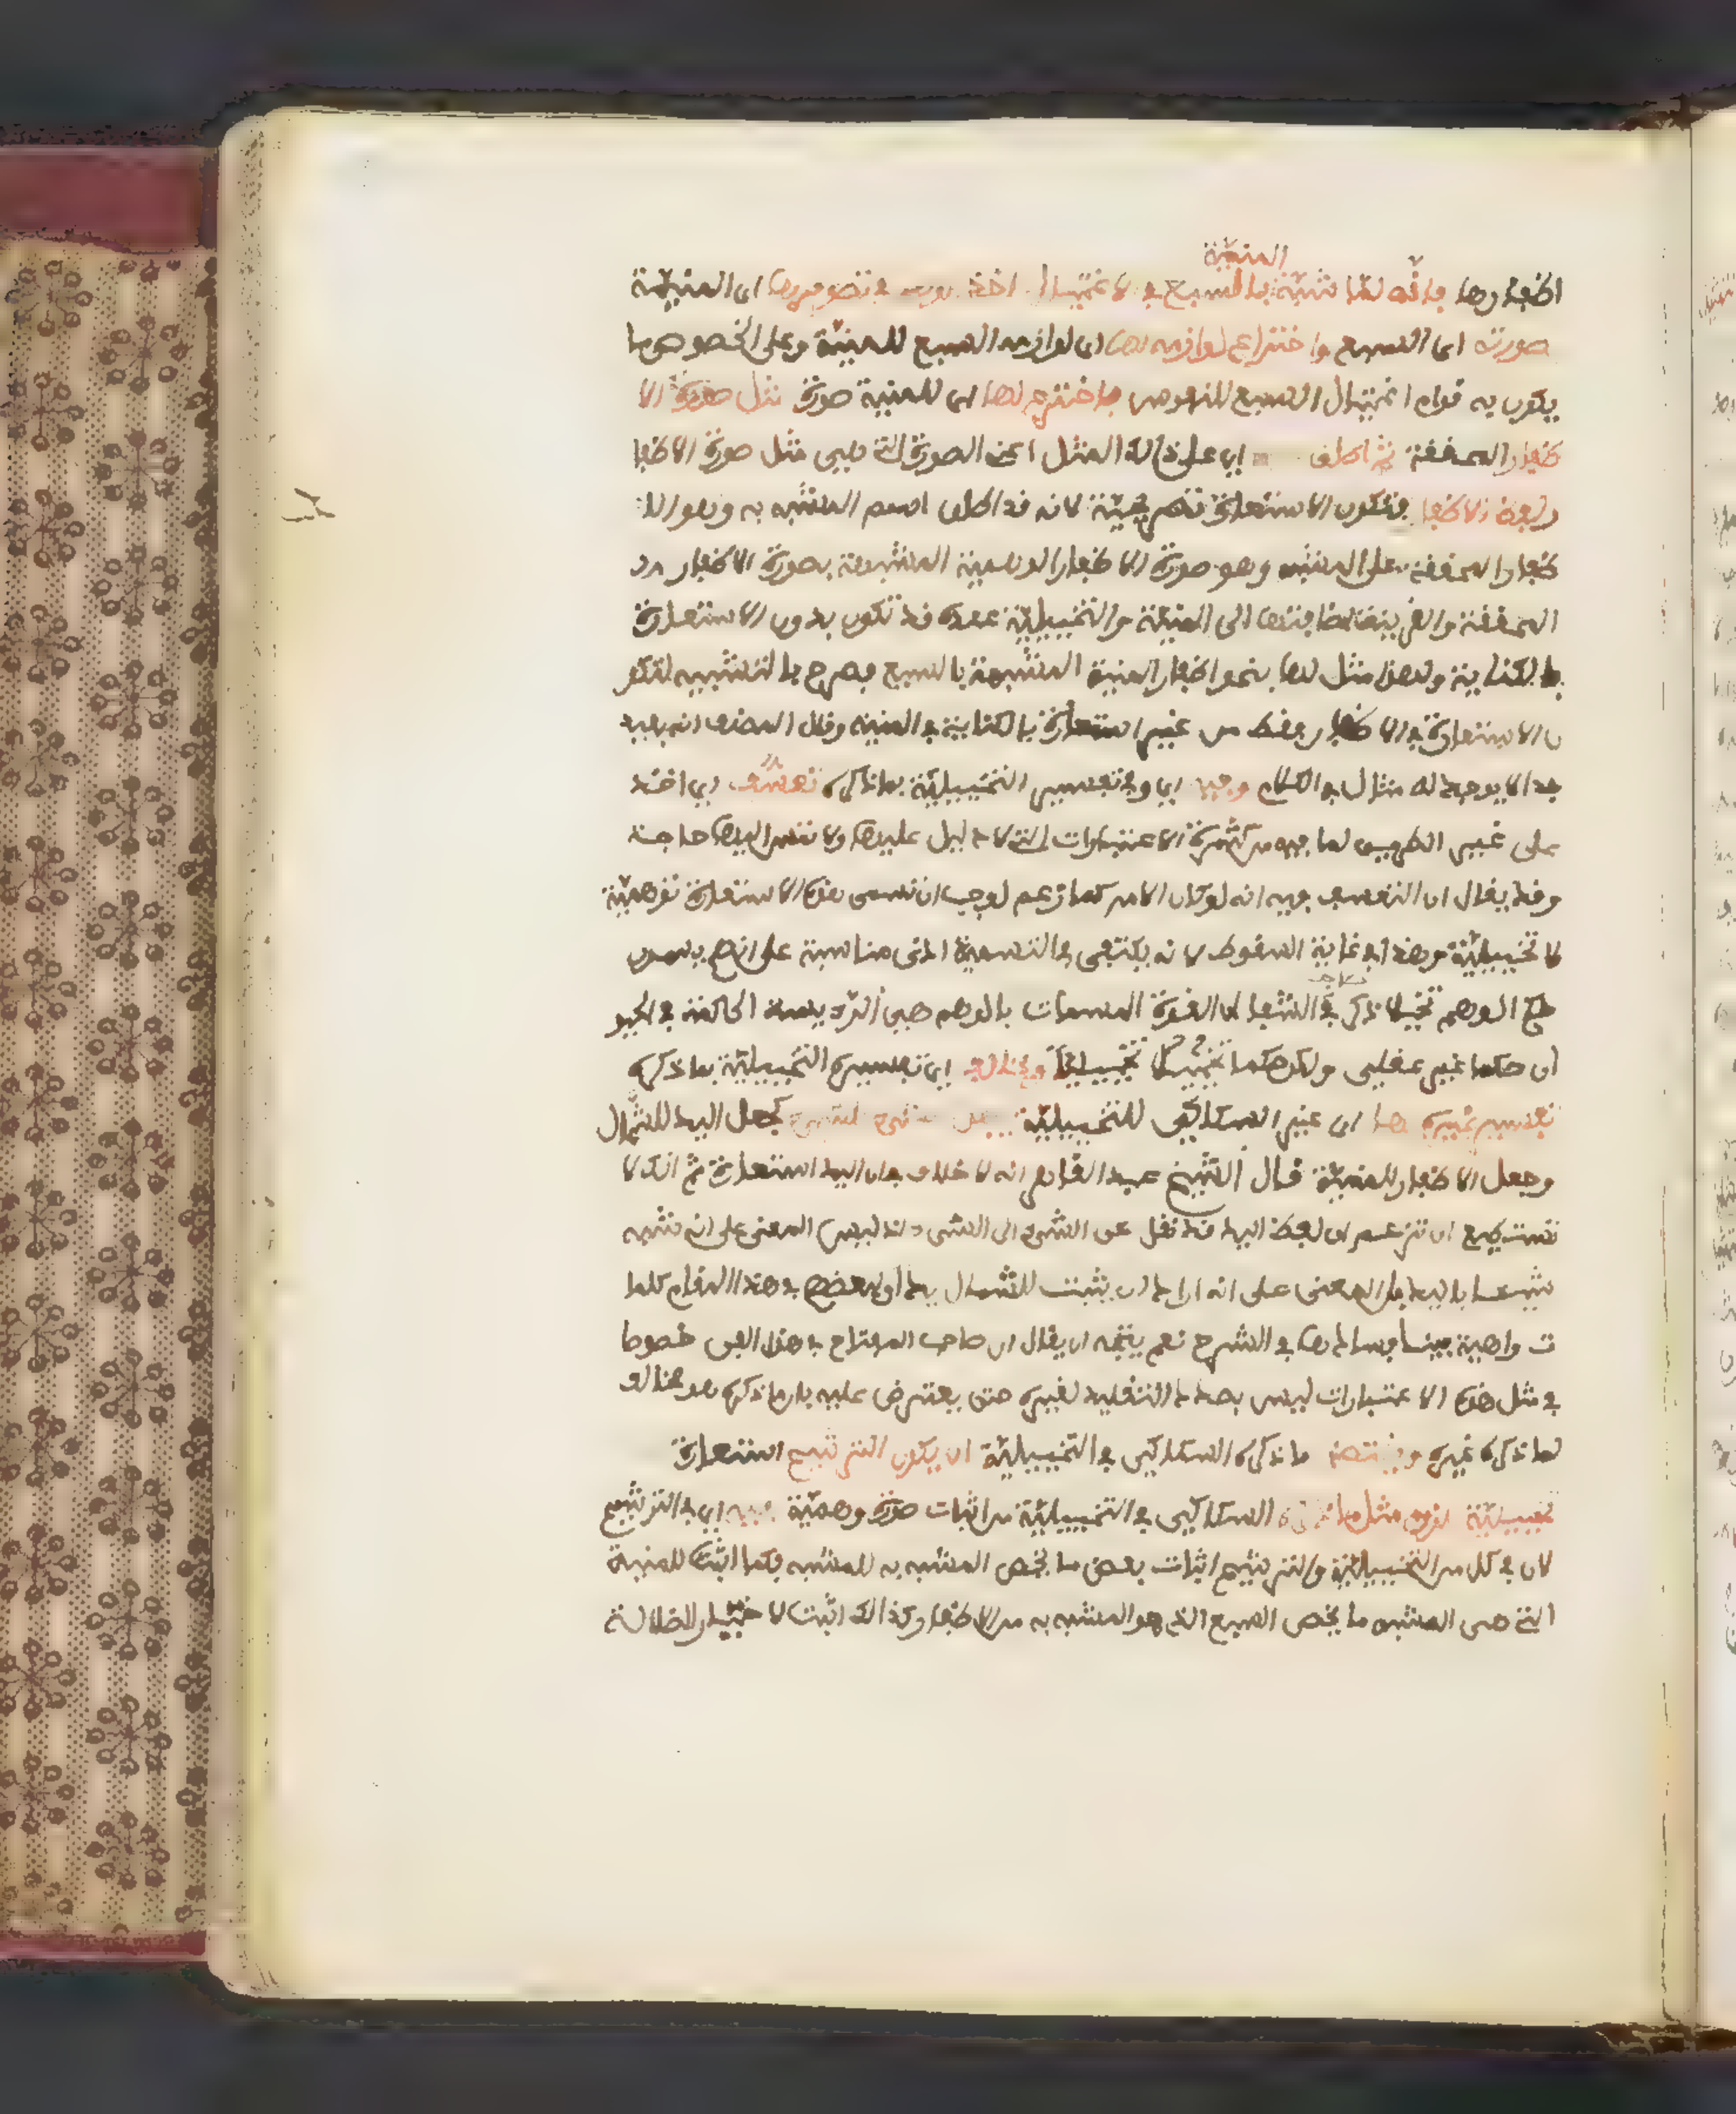 المنيّة
اظفارها فانّه لمّا شبّه بالسبع في الاغتيال اخذ الوهم في تصويرها اى المنيّة
صورته اى السبع واختراع لوازمه لها اى لوازم السبع للمنيّة وعلى الخصوص ما
يكون به قوام اغتيال السبع للنفوس فاخترع لها اى للمنية صورة مثل صورة الا
ظفار المحققة ثم اطلق اي على ذالك المثل اعنى الصورة التى هي مثل صورة الاظفا
ر لفظ الاظفا فتكون الاستعارة تصريحيّة لانه قد اطلق اسم المشبه به وهو الا
ظفار المحققة على المشبه وهو صورة الاظفار الوهمية المشبهة بصورة الاظفار
المحققة والقرينة اضافتها الى المنيّة والتخييليّة عنده قد تكون بدون الاستعارة
بالكناية ولهذا مثل لها بنحو اظفار المنية المشبهة بالسبع فصرح بالتشبيه لتكو
ن الاستعارة في الاظفار فقط من غير استعارة بالكناية في المنية وقال المصنف انه بعيد
جدا لا يوجد له مثال في الكلام وفيه اي وفي تفسير التخييليّة بما ذكره تعسّف اي اخذ
على غير الطريق لما فيه من كثرة الاعتبارات التى لا دليل عليها ولا تمس اليها حاجة
وقد يقال ان التعسف فيه انه لو كان الامر كما زعم لوجب ان تسمى هذه الاستعارة توهميّة
لا تخييليّة وهذا في غاية السقوط لانه يكتفى في التسمية ادنى مناسبة على انهم يسمون
حكم الوهم تخييلا ذكر في الشفا ان القوة المسمات بالوهم هى الرئيسة الحاكمة في الحيو
ان حكما غير عقلي ولكن حكما تخييليّا ويخالف اي تفسيره التخييليّة بما ذكره
تفسير غيره لها اى غير السكاكي للتخييليّة بجعل الشيء للشيء كجعل اليد للشمال
وجعل الاظفار للمنيّة قال الشيخ عبد القاهر انه لا خلاف في ان اليد استعارة ثم انك لا
تستطيع ان تزعم ان لفظ اليد قد نقل عن الشيء الى الشيء اذ ليس المعنى على انه شبه
شيئا باليد بل المعنى على انه اراد ان يثبت للشمال يدا ولبعضهم في هذا المقام كلما
ت واهية بينا فسادها في الشرح نعم يتجه ان يقال ان صاحب المفتاح في هذا الفن خصوصا
في مثل هذه الاعتبارات ليس بصدد التقليد لغيره حتى يعترض عليه بان ما ذكره هو مخالف
لما ذكره غيره ويقتضى ما ذكره السكاكي في التخييليّة ان يكون الترشيح استعارة
تخييليّة لزوم مثل ما ذكره السكاكي في التخييليّة من اثبات صورة وهميّة فيه اي في الترشيح
لان في كل من التخييليّة والترشيح اثبات بعض ما يخص المشبه به للمشبه فكما اثبت للمنية
التى هى المشبه ما يخص السبع الذى هو المشبه به من الاظفار كذالك اثبت لاختيار الضلالة